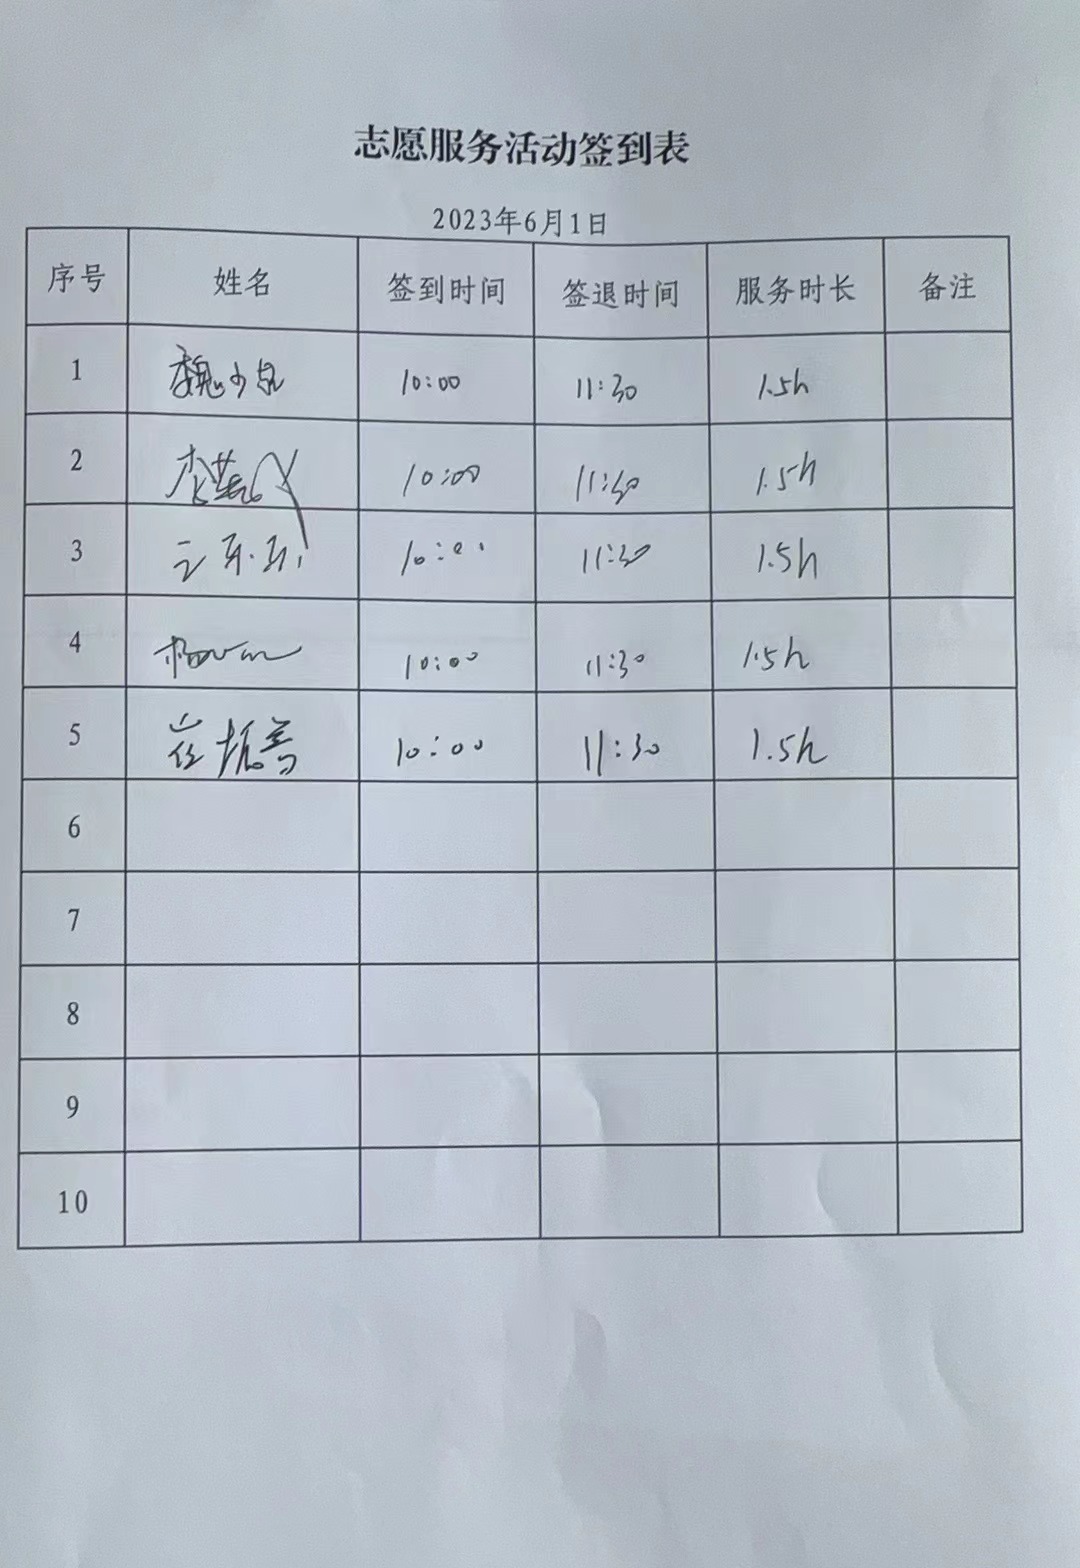 志愿服务活动签到表
2023年6月1日
序号 姓名 签到时间 签退时间 服务时长 备注
1 魏少泉 10:00 11:30 1.5h
2 李 10:00 11:30 1.5h
3 10:00 11:30 1.5h
4 10:00 11:30 1.5h
5 崔振 10:00 11:30 1.5h
6
7
8
9
10